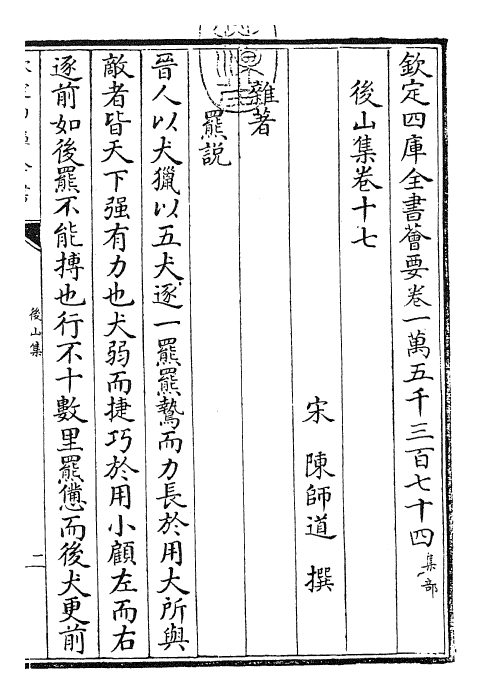 欽定四庫全書薈要卷一萬五千三百七十四 集部
後山集卷十七
宋 陳師道 撰
雜著
羆説
晉人以犬獵以五犬逐一羆羆鷙而力長於用大所與
敵者皆天下强有力也犬弱而捷巧於用小顧左而右
逐前如後羆不能搏也行不十數里羆憊而後犬更前
後山集
二